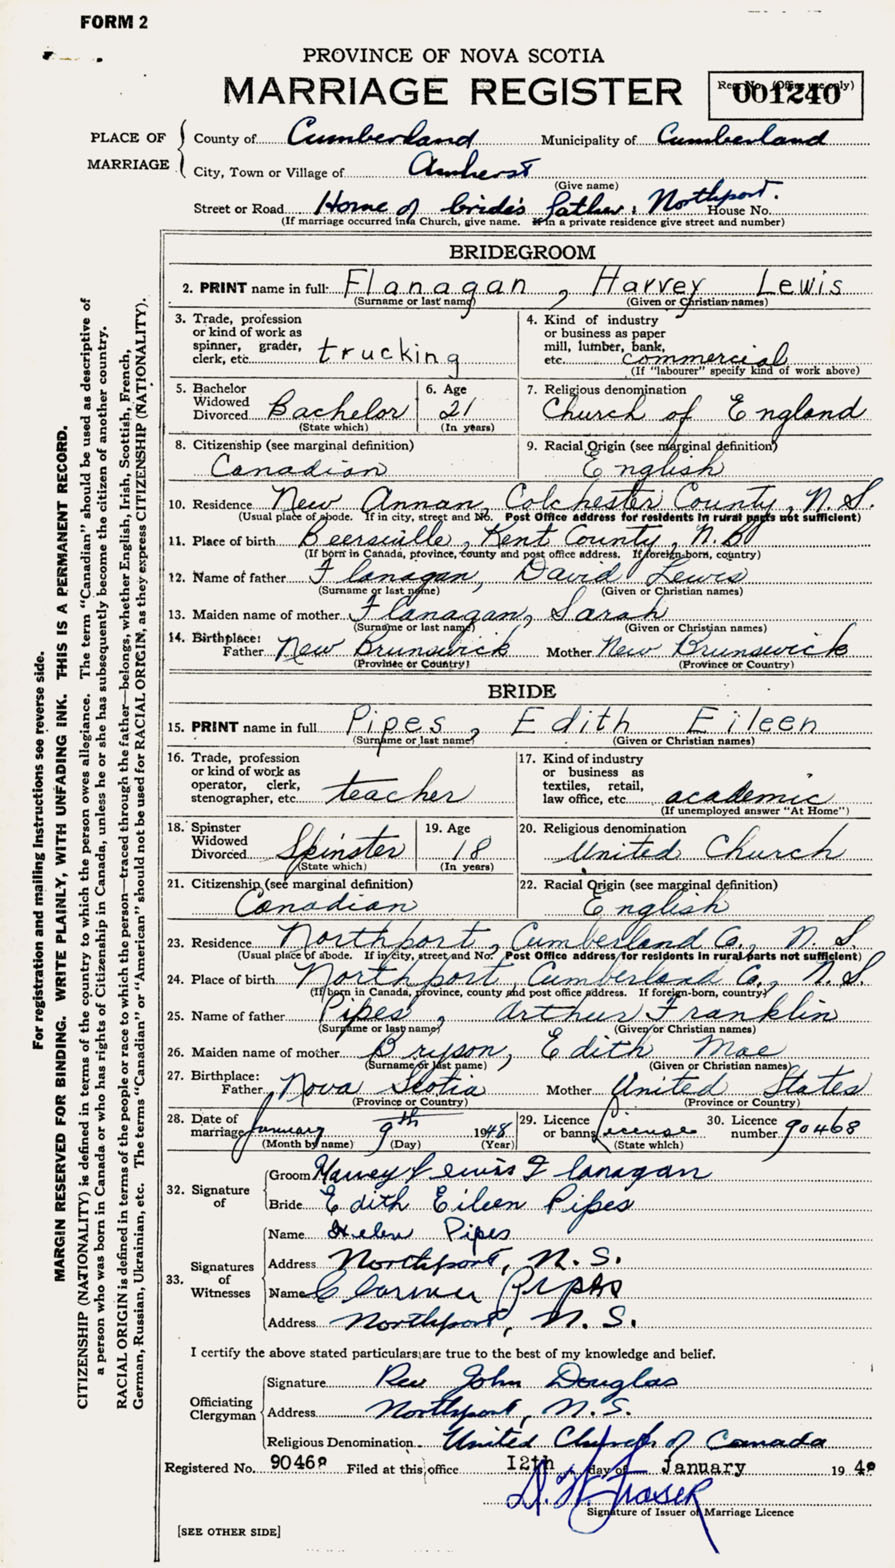 FORM 2
PROVINCE OF NOVA SCOTIA
MARRIAGE REGISTER
Reg. No. (Office use only)
001240
PLACE OF MARRIAGE
County of Cumberland Municipality of Cumberland
City, Town or Village of Amherst
(Give name)
Street or Road Home of bride's father, Northport. House No.
(If marriage occurred in a Church, give name. If in a private residence give street and number)
BRIDEGROOM
2. PRINT name in full Flanagan, Harvey Lewis
(Surname or last name) (Given or Christian names)
3. Trade, profession or kind of work as spinner, grader, clerk, etc. trucking
4. Kind of industry or business as paper mill, lumber, bank, etc. commercial
(If "labourer" specify kind of work above)
5. Bachelor Widowed Divorced Bachelor (State which)
6. Age 21 (In years)
7. Religious denomination Church of England
8. Citizenship (see marginal definition) Canadian
9. Racial Origin (see marginal definition) English
10. Residence New Annan, Colchester County, N.S.
(Usual place of abode. If in city, street and No. Post Office address for residents in rural parts not sufficient)
11. Place of birth Beersville, Kent County, N.B.
(If born in Canada, province, county and post office address. If foreign-born, country)
12. Name of father Flanagan, David Lewis
(Surname or last name) (Given or Christian names)
13. Maiden name of mother Flanagan, Sarah
(Surname or last name) (Given or Christian names)
14. Birthplace:
Father New Brunswick Mother New Brunswick
(Province or Country) (Province or Country)
BRIDE
15. PRINT name in full Pipes, Edith Eileen
(Surname or last name) (Given or Christian names)
16. Trade, profession or kind of work as operator, clerk, stenographer, etc. teacher
17. Kind of industry or business as textiles, retail, law office, etc. academic
(If unemployed answer "At Home")
18. Spinster Widowed Divorced Spinster (State which)
19. Age 18 (In years)
20. Religious denomination United Church
21. Citizenship (see marginal definition) Canadian
22. Racial Origin (see marginal definition) English
23. Residence Northport, Cumberland Co., N.S.
(Usual place of abode. If in city, street and No. Post Office address for residents in rural parts not sufficient)
24. Place of birth Northport, Cumberland Co., N.S.
(If born in Canada, province, county and post office address. If foreign-born, country)
25. Name of father Pipes, Arthur Franklin
(Surname or last name) (Given or Christian names)
26. Maiden name of mother Bryson, Edith Mae
(Surname or last name) (Given or Christian names)
27. Birthplace:
Father Nova Scotia Mother United States
(Province or Country) (Province or Country)
28. Date of marriage January 9th 1948
(Month by name) (Day) (Year)
29. Licence or banns License (State which)
30. Licence number 90468
32. Signature of
Groom Harvey Lewis Flanagan
Bride Edith Eileen Pipes
33. Signatures of Witnesses
Name Helen Pipes
Address Northport, N.S.
Name Clarence Pipes
Address Northport, N.S.
I certify the above stated particulars are true to the best of my knowledge and belief.
Officiating Clergyman
Signature Rev John Douglas
Address Northport, N.S.
Religious Denomination United Church of Canada
Registered No. 90468 Filed at this office 12th day of January 1948
D. W. Fraser
Signature of Issuer of Marriage Licence
[SEE OTHER SIDE]
For registration and mailing instructions see reverse side.
MARGIN RESERVED FOR BINDING. WRITE PLAINLY, WITH UNFADING INK. THIS IS A PERMANENT RECORD.
CITIZENSHIP (NATIONALITY) is defined in terms of the country to which the person owes allegiance. The term "Canadian" should be used as descriptive of
a person who was born in Canada or who has rights of Citizenship in Canada, unless he or she has subsequently become the citizen of another country.
RACIAL ORIGIN is defined in terms of the people or race to which the person—traced through the father—belongs, whether English, Irish, Scottish, French,
German, Russian, Ukrainian, etc. The terms "Canadian" or "American" should not be used for RACIAL ORIGIN, as they express CITIZENSHIP (NATIONALITY).